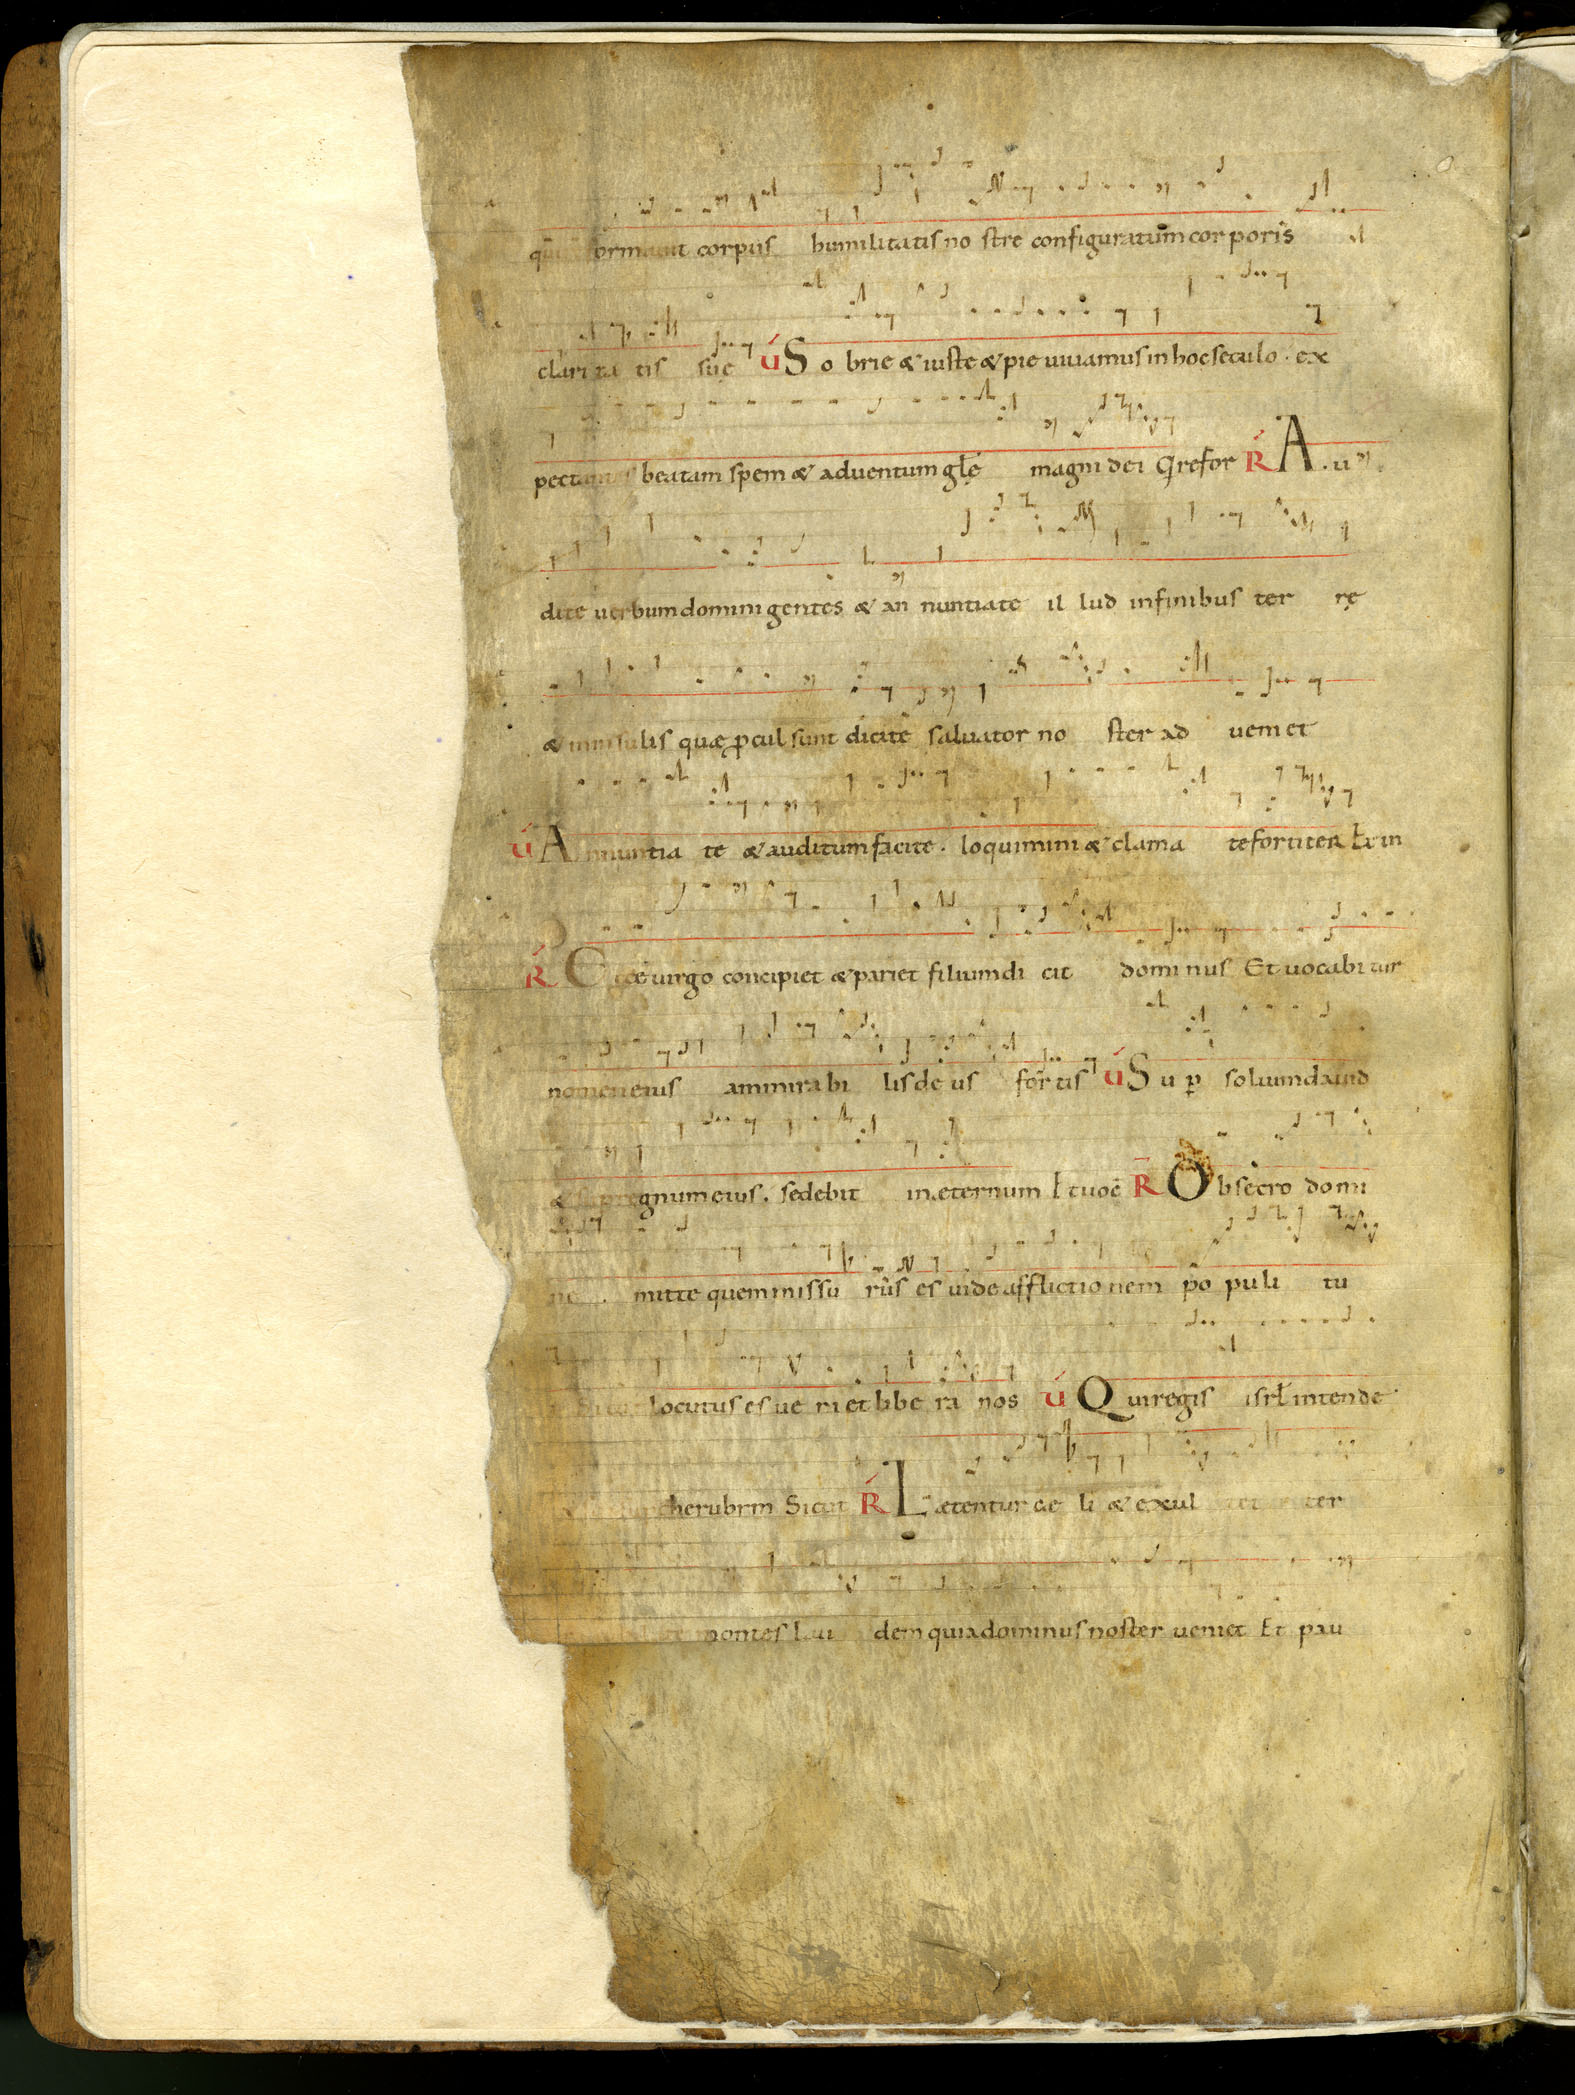 corpus humilitatis no stre configuratum cor poris
clari ta tis sue V́ S o brie & iuste & pie uiuamus in hoc seculo · ex
pectantes beatam spem & aduentum glę magni dei Q refor Ŕ A . u
dite uerbum domini gentes & an nuntiate il lud in finibus ter rę
& in insulis quæ pcul sunt dicite saluator no ster ad ueniet
V́ A nnuntia te & auditum facite · loquimini & clama te fortiter Et in
Ŕ E cce uirgo concipiet & pariet filium di cit dominus Et uocabitur
nomen eius ammirabi lis de us fortis V́ S u p solium dauid
& sup regnum eius . sedebit in eternum Et uoc̄ R̄ O bsecro domi
ne . mitte quem missu rus es uide afflictionem po puli tu
locutus es ue ni et libe ra nos V́ Q ui regis isrł intende
cherubim Sicut Ŕ L ætentur cæ li & exul tet ter
montes lau dem quia dominus noster ueniet Et pau